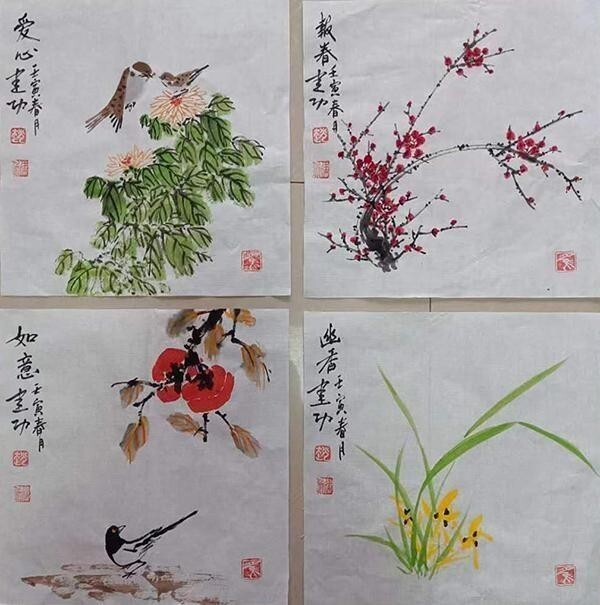 愛心
壬寅春月
建功
報春
壬寅春月
建功
如意
壬寅春月
建功
幽香
壬寅春月
建功